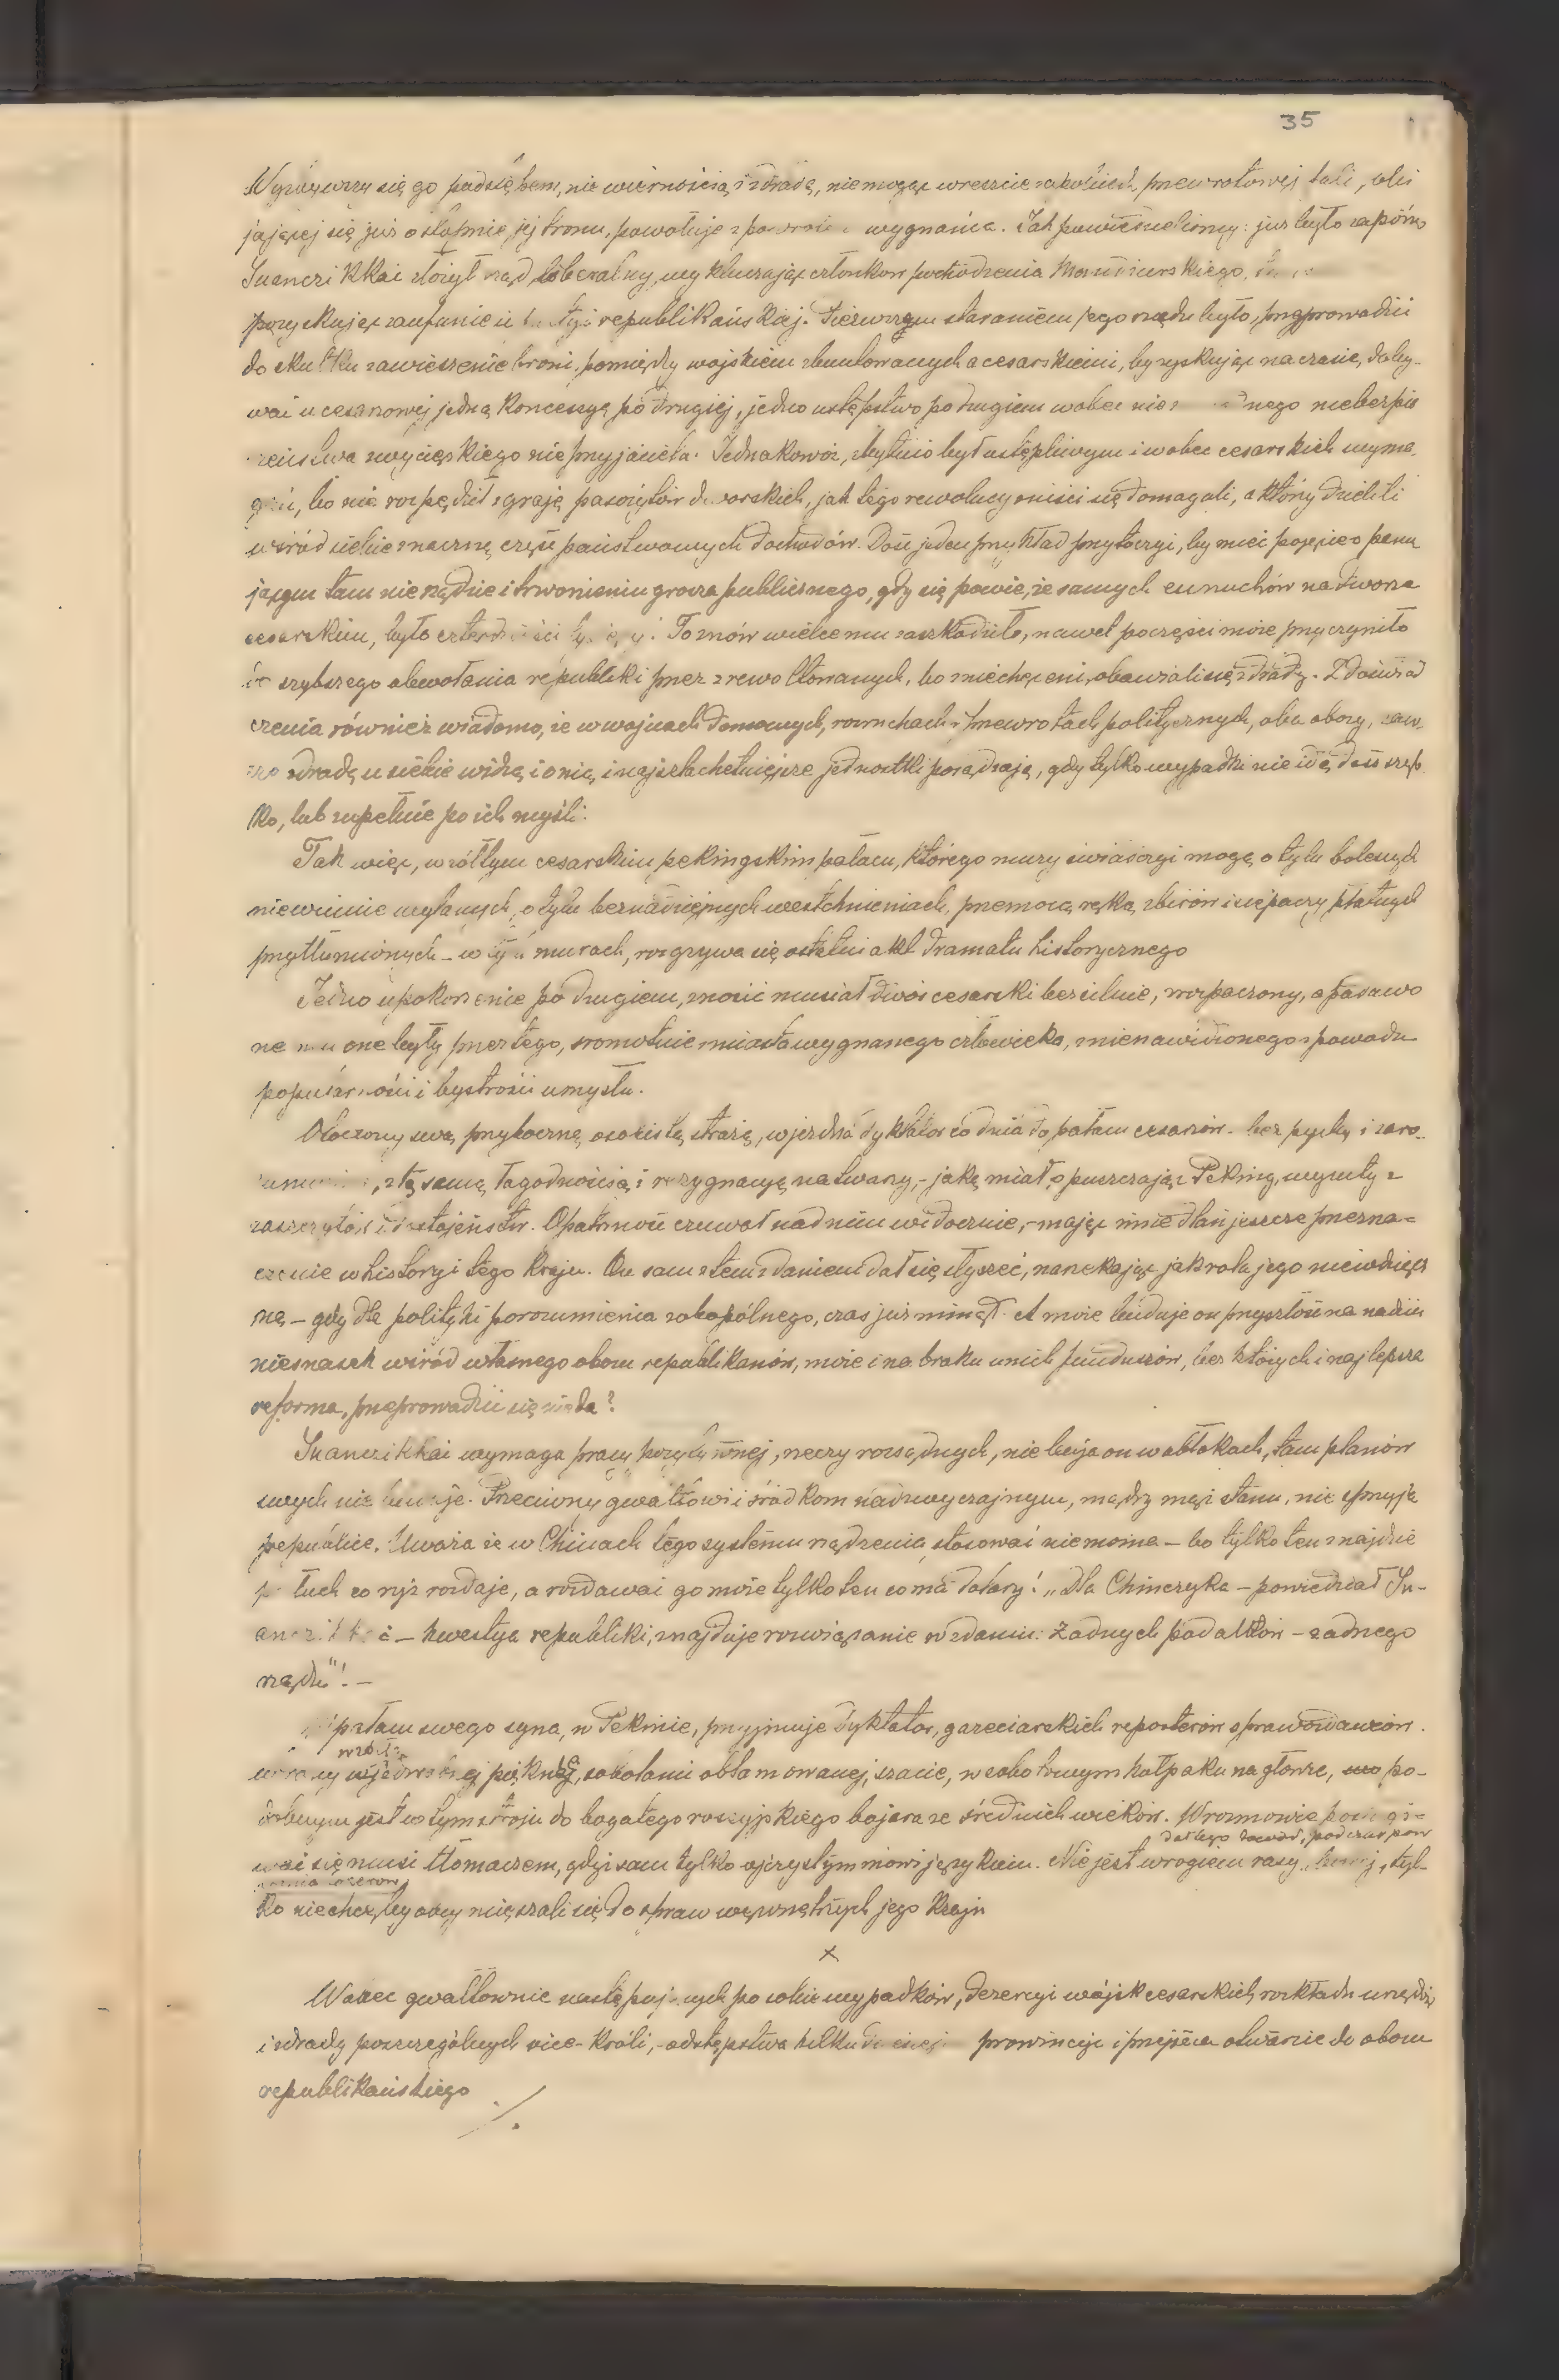 35
Wyzuwszy się go podstępem, niewiernością i zdradą, nie mogąc wreszcie zapobiedz przewrotowej fali, obi
jającej się już o stopnie jej tronu, powołuje z powrotem z wygnania. Jak powiedzieliśmy: już było zapóźno
Juanczikkai złożył rząd liberalny, wykluczając członków pochodzenia Mandżurskiego,
pozyskując zaufanie u partyi republikańskiej. Pierwszym staraniem jego rządu było, przyprowadzić
do skutku zawieszenie broni, pomiędzy wojskiem zbuntowanych a cesarskiemi, by zyskując na czasie, doby-
wać u cesarzowej jedną koncesyę po drugiej, jedno ustępstwo po drugiem wobec nieznego niebezpie
czeństwa zwycięskiego nieprzyjaciela. Jednakowoż, zbytnio był ustępliwym i wobec cesarskich wyma-
gań, bo nie rozpędził zgraję pasożytów dworskich, jak tego rewolucyoniści się domagali, a który dzielili
wśród siebie znaczną część państwowych dochodów. Dość jeden przykład przytoczyć, by mieć pojęcie o panu
jącym tam nierządzie i trwonieniu grosza publicznego, gdy się powie, że samych eunuchów na dworze
cesarskim, było czterdzieści tysięcy! To znów wielce mu zaszkodziło, nawet poczęści może przyczyniło
do szybszego obwołania republiki przez zrewoltowanych, bo zniechęceni, obawiali się zdrady. Z doświad
czenia również wiadomo, że w wojnach domowych, rozruchach i przewrotach politycznych, oba obozy, zaw-
sze zdradę u siebie widzą i o nią i najszlachetniejsze jednostki posądzają, gdy tylko wypadki nie idą dość szyb
ko, lub zupełnie po ich myśli.
Tak więc, w żółtym cesarskim, pekingskim pałacu, którego mury świadczyć mogą o tylu bolesnych
niewinnie wylanych, o tylu beznadziejnych westchnieniach, przemocą ręką zbirów i siepaczy płatnych
przytłumionych – w tych murach, rozgrywa się ostatni akt dramatu historycznego
Jedno upokorzenie po drugiem, znosić musiał dwór cesarski bezsilnie, zrozpaczony, a podawa
ne mu one były przez tego, sromotnie z miasta wygnanego człowieka, znienawidzonego z powodu
popularności i bystrości umysłu.
Otoczony swą przyboczną osobistą strażą, wjeżdża dyktator co dnia do pałacu cesarzów – bez pychy i zaro-
zumienia, z tą samą łagodnością i rezygnacyą na twarzy, – jaką miał opuszczając Peking, wyzuty z
zaszczytów i dostojeństw. Opatrzność czuwał nad nim widocznie, – mając inne dlań jeszcze przezna=
czenie w historyi tego kraju. On sam z tem zdaniem dał się słyszeć, narzekając jak rola jego niewdzięcz
ną – gdy dla polityki porozumienia zobopólnego, czas już minął. A może buduje on przyszłość na nadziei
niesnasek wśród własnego obozu republikanów, może i na braku u nich funduszów, bez których i najlepsza
reforma, przeprowadzić się nie da?
Juanczikkai wymaga pracy pozytywnej, rzeczy rozsądnych, nie buja on w obłokach, tam planów
swych nie buduje. Przeciwny gwałtowi i środkom nadzwyczajnym, mądry mąż stanu, nie sprzyja
republice. Uważa że w Chinach tego systemu rządzenia stosować nie można – bo tylko ten znajdzie
posłuch co ryż rozdaje, a rozdawać go może tylko ten co ma dolary! „Dla Chińczyka – powiedział Ju-
anczikkai – kwestya republiki, znajduje rozwiązanie w zdaniu: żadnych podatków – żadnego
rządu"! –
W pałacu swego syna, w Pekinie, przyjmuje dyktator, gazeciarskich reporterów sprawozdawców.
w żółtą
Ubrany w jedwabnej pięknej, sobolami obłamowanej, szacie, w sobolowym kołpaku na głowie, po-
dobnym jest w tym stroju do bogatego rosyjskiego bojara ze średnich wieków. W rozmowie posługi=
dał tego dowód, podczas pow
wać się musi tłomaczem, gdyż sam tylko ojczystym mówi językiem. Nie jest wrogiem rasy białej, tyl-
stania bokserów
ko nie chce, by obcy mięszali się do spraw wewnętrznych jego kraju
x
Wobec gwałtownie następujących po sobie wypadków, dezercyi wojsk cesarskich, rozkładu urzędów
i zdrady poszczególnych vice-króli, – odstępstwa kilkudziesięciu prowincyi i przejścia otwarcie do obozu
republikańskiego
./.